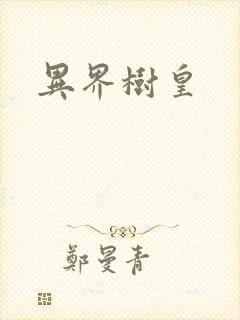 異界樹皇
鄭曼青